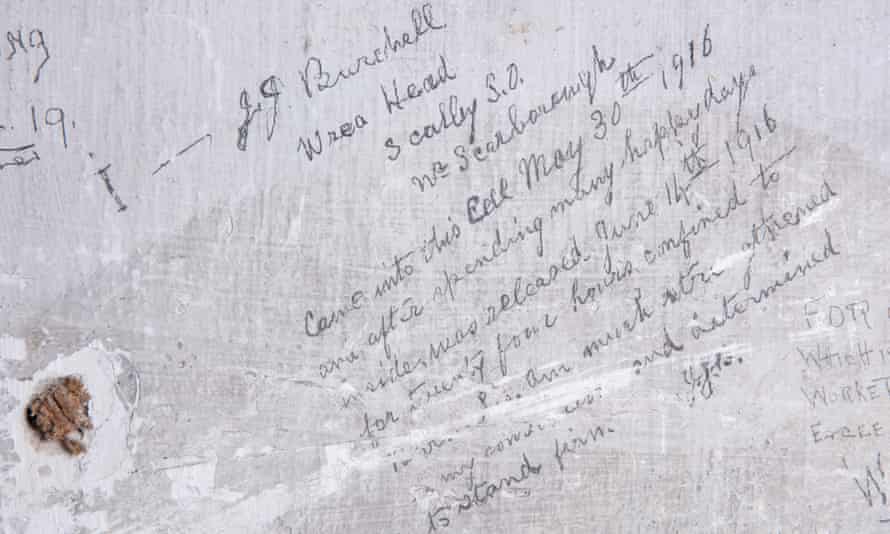 NG
19.
I — J.J. Burchell
Wrea Head
Scalby S.O.
Nr Scarborough
Came into this Cell May 30th 1916
and after spending many happy days
inside, was released June 14th 1916
for twenty four hours confined to
am much strengthened
my and determined
to stand firm.
FOR
WHICH
WORKE
EXCEE
W